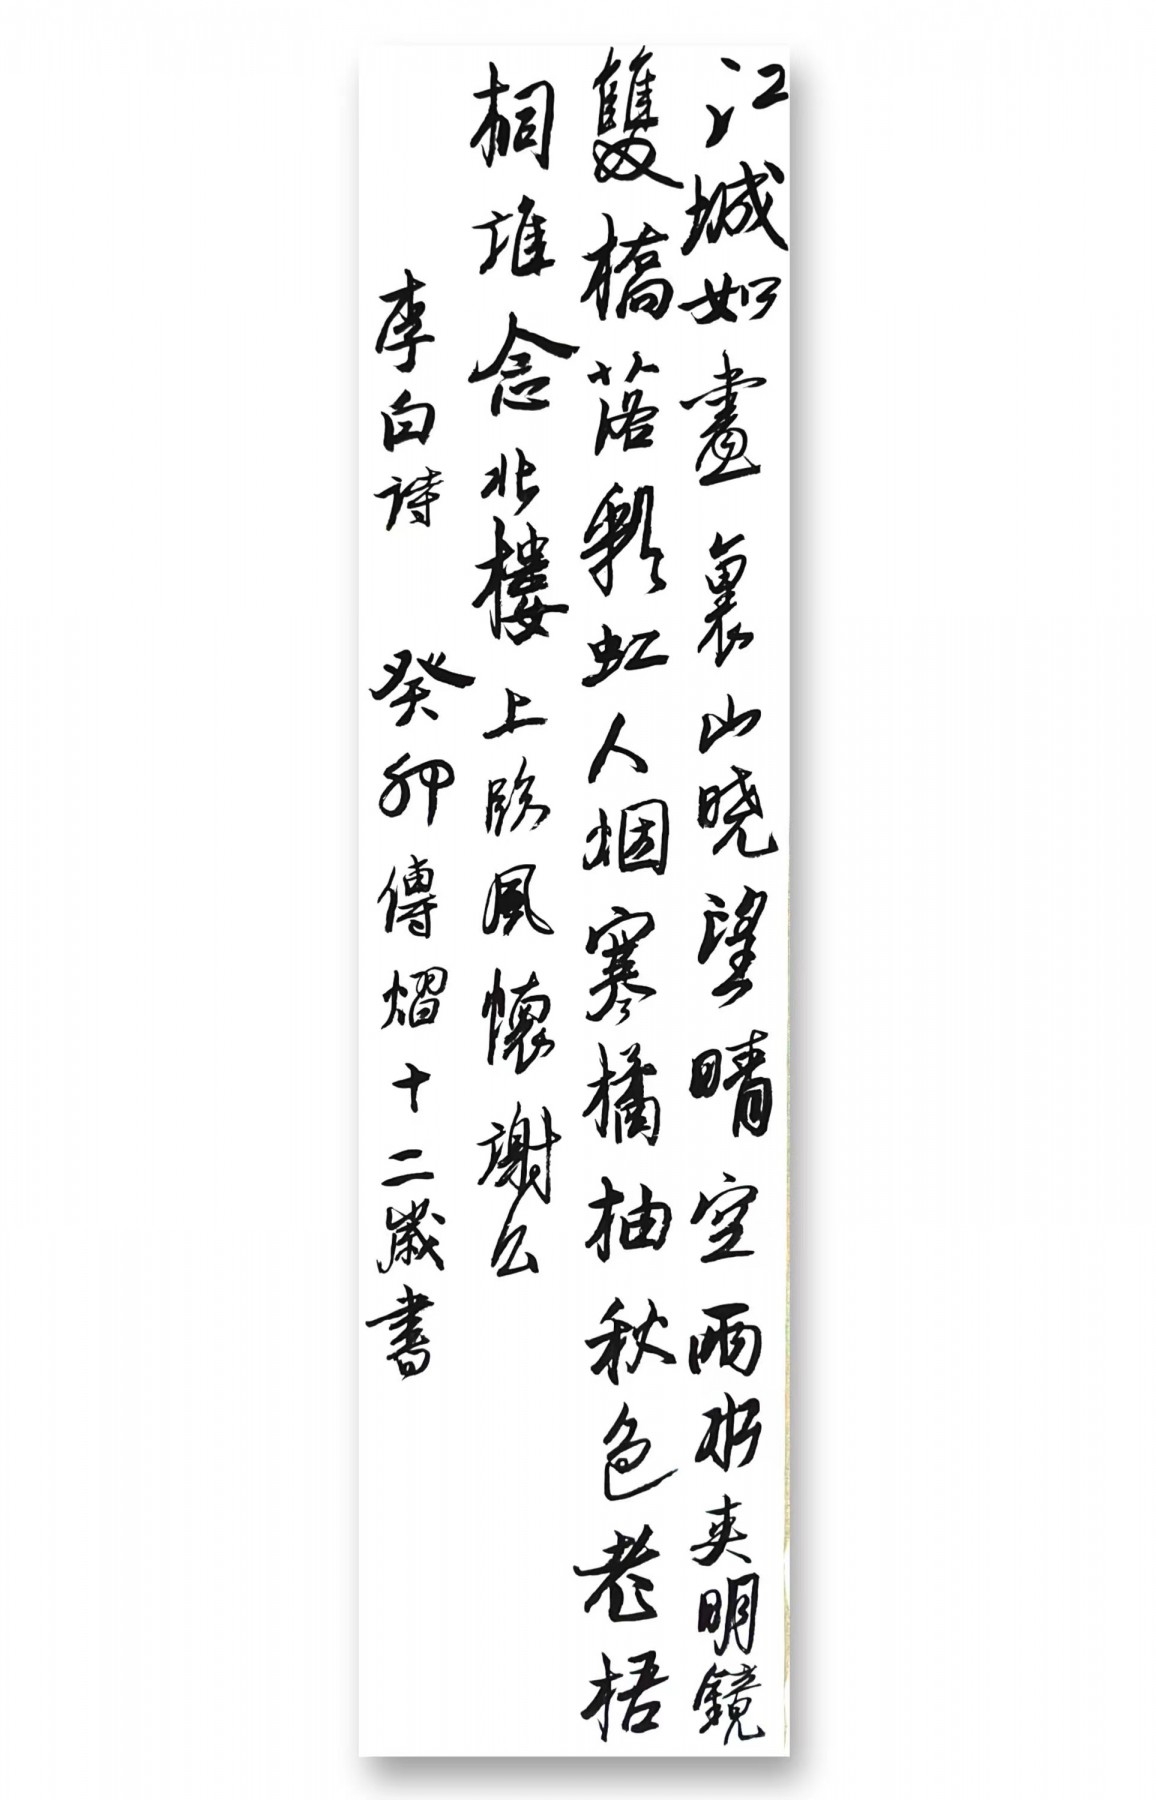 江城如畫裏山晓望晴空兩水夾明鏡
雙橋落彩虹人烟寒橘柚秋色老梧
桐誰念北樓上臨風懷謝公
李白詩 癸卯傅熠十二歲書